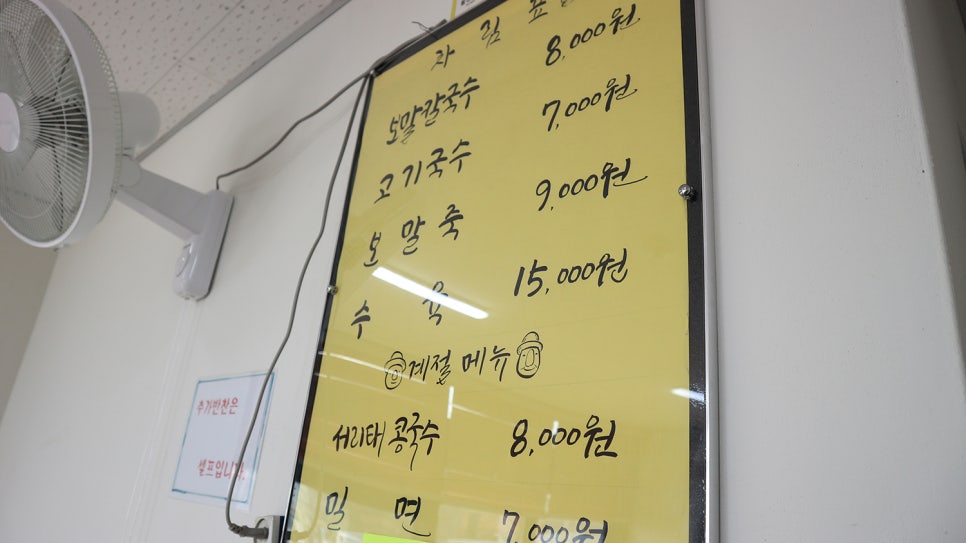 차림표
보말칼국수 8,000원
고기국수 7,000원
보말죽 9,000원
수육 15,000원
계절메뉴
서리태콩국수 8,000원
밀면 7,000원
추가반찬은
셀프입니다.